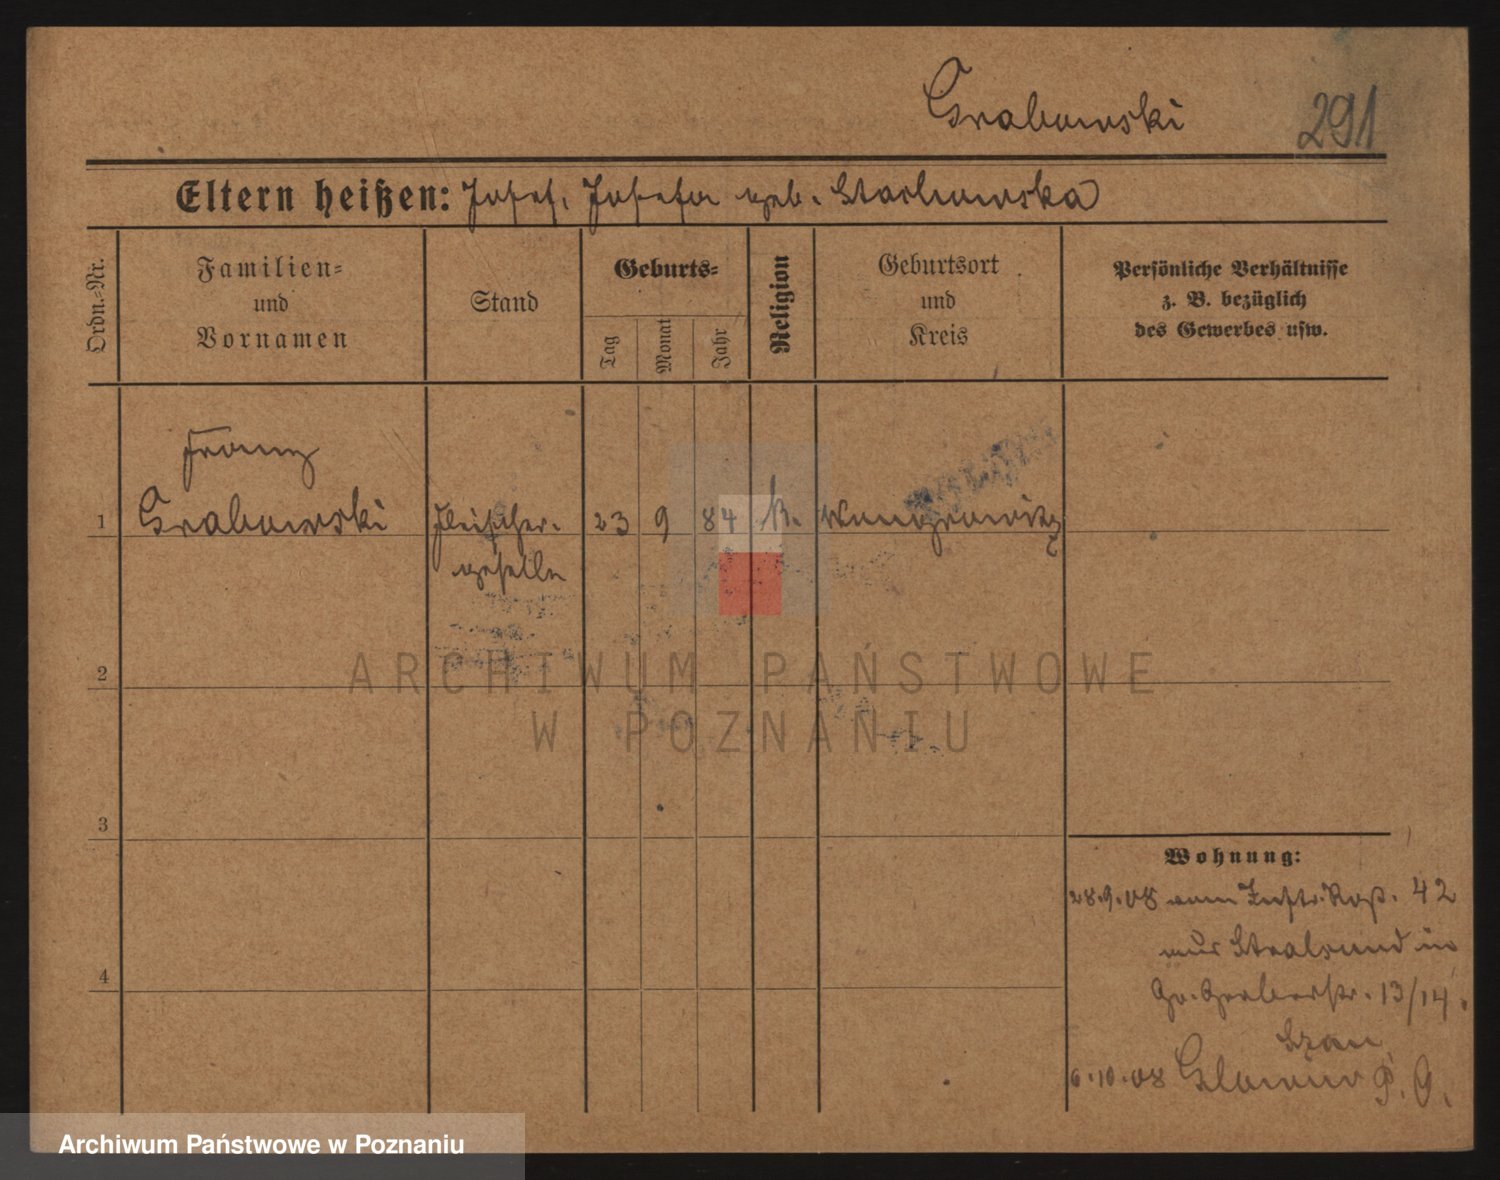 Grabowski
291
Eltern heißen: Josef, Josefa geb. Stachowska
Ordn.-Nr.
Familien-
und
Vornamen
Stand
Geburts-
Tag
Monat
Jahr
Religion
Geburtsort
und
Kreis
Persönliche Verhältnisse
z. B. bezüglich
des Gewerbes usw.
Franz
1 Grabowski Fleischer- 23 9 84 k. Wongrowitz
geselle
ARCHIWUM PAŃSTWOWE
W POZNANIU
2
3
4
Wohnung:
28.9.08 vom Inftr. Rgt. 42
aus Stralsund in
Gr. Gerberstr. 13/14.
6.10.08 P. O.
Archiwum Państwowe w Poznaniu